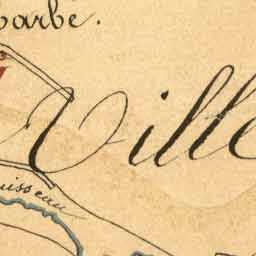 Barbe.
Ville
Ruisseau